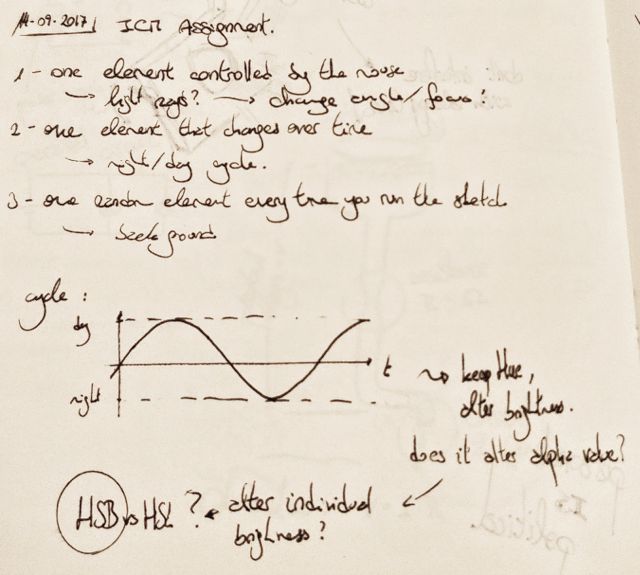 11-09-2017 ICM Assignment.
1 - one element controlled by the mouse
→ light rays? → change angle/focus?
2 - one element that changes over time
→ night/day cycle.
3 - one random element every time you run the sketch
→ background
cycle :
day
t
night
~> keep Hue,
alter brightness.
does it alter alpha value?
HSB vs HSL ? ← alter individual
brightness?
politics.